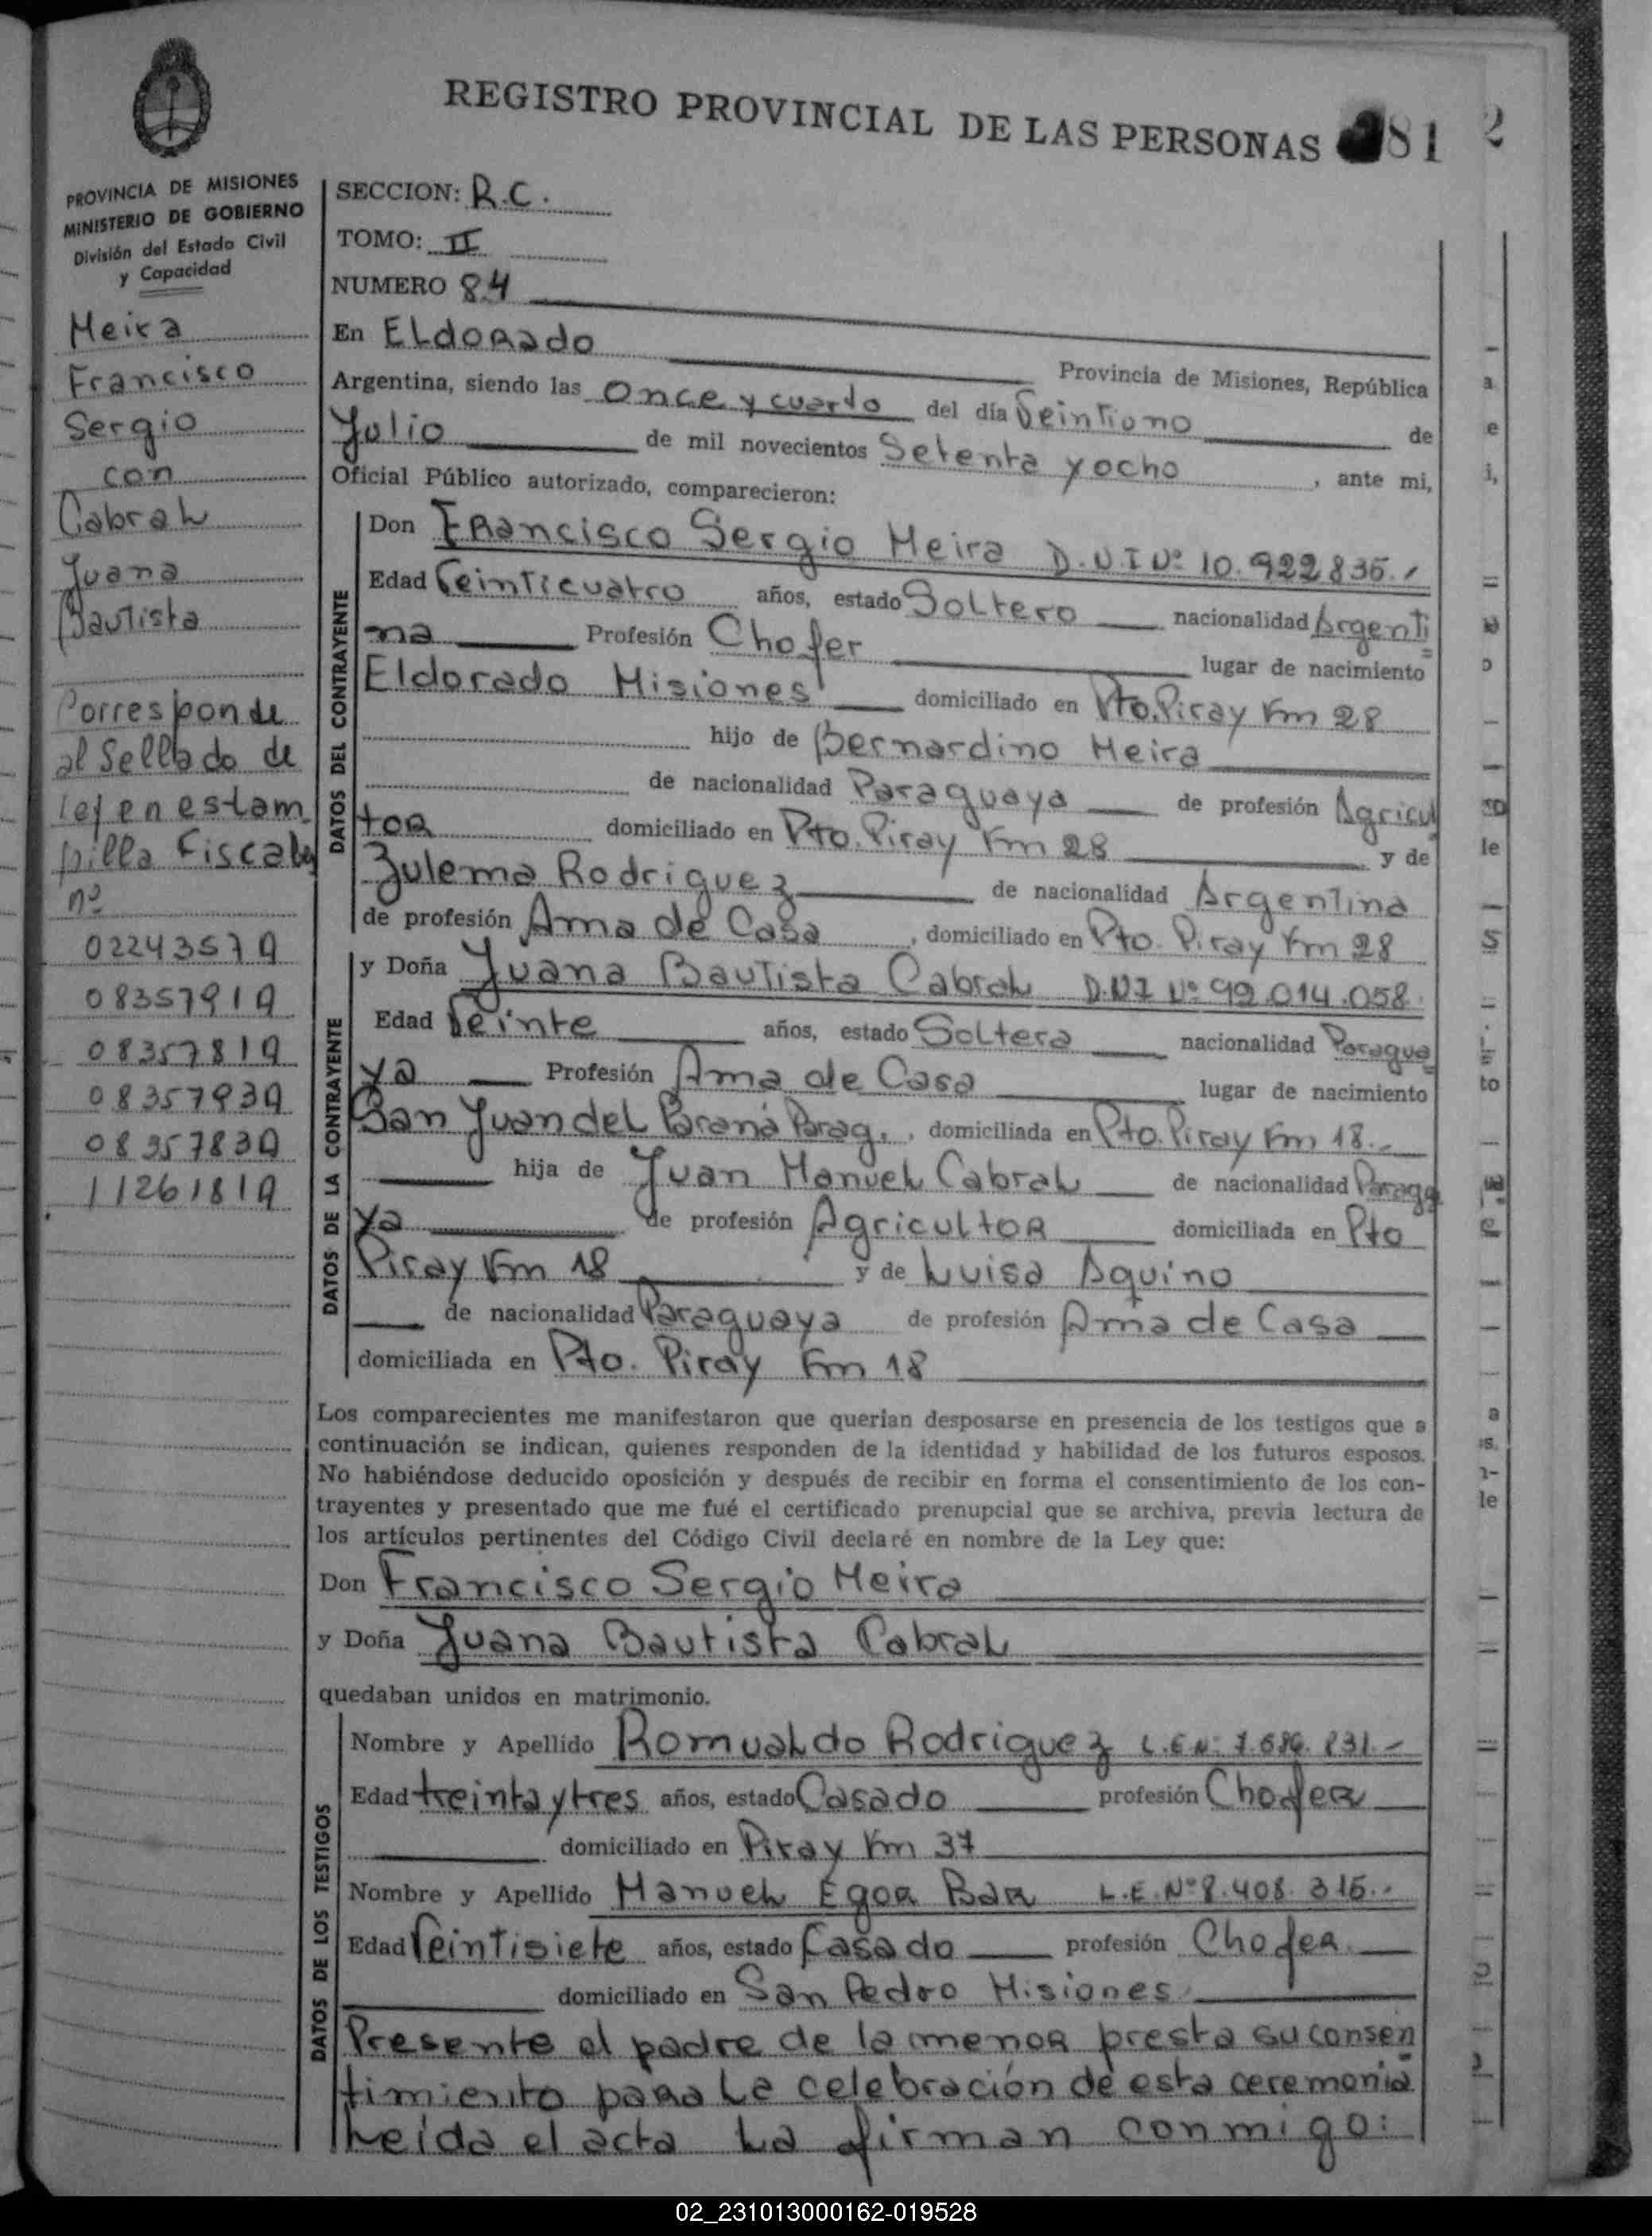 REGISTRO PROVINCIAL DE LAS PERSONAS 81
PROVINCIA DE MISIONES
MINISTERIO DE GOBIERNO
División del Estado Civil
y Capacidad
Meira
Francisco
Sergio
con
Cabral
Juana
Bautista
Corresponde
al Sellado de
ley en estam
pilla Fiscales
nº
0224357A
0835791A
0835781A
0835793A
0835783A
1126181A
SECCION: R.C.
TOMO: II
NUMERO 84
En Eldorado
Provincia de Misiones, República
Argentina, siendo las Once y cuarto del día Veintiuno de
Julio de mil novecientos Setenta y ocho, ante mi,
Oficial Público autorizado, comparecieron:
DATOS DEL CONTRAYENTE
Don Francisco Sergio Meira D.N.I Nº 10.922.835.
Edad Veinticuatro años, estado Soltero nacionalidad Argenti
na Profesión Chofer lugar de nacimiento
Eldorado Misiones domiciliado en Pto. Piray Km 28
hijo de Bernardino Meira
de nacionalidad Paraguaya de profesión Agricul
tor domiciliado en Pto. Piray Km 28 y de
Zulema Rodriguez de nacionalidad Argentina
de profesión Ama de Casa, domiciliado en Pto. Piray Km 28
DATOS DE LA CONTRAYENTE
y Doña Juana Bautista Cabral D.N.I Nº 92.014.058.
Edad Veinte años, estado Soltera nacionalidad Paragua
ya Profesión Ama de Casa lugar de nacimiento
San Juan del Paraná Parag., domiciliada en Pto. Piray Km 18.
hija de Juan Manuel Cabral de nacionalidad Paragua
ya de profesión Agricultor domiciliada en Pto
Piray Km 18 y de Luisa Aquino
de nacionalidad Paraguaya de profesión Ama de Casa
domiciliada en Pto. Piray Km 18
Los comparecientes me manifestaron que querían desposarse en presencia de los testigos que a
continuación se indican, quienes responden de la identidad y habilidad de los futuros esposos.
No habiéndose deducido oposición y después de recibir en forma el consentimiento de los con-
trayentes y presentado que me fué el certificado prenupcial que se archiva, previa lectura de
los artículos pertinentes del Código Civil declaré en nombre de la Ley que:
Don Francisco Sergio Meira
y Doña Juana Bautista Cabral
quedaban unidos en matrimonio.
DATOS DE LOS TESTIGOS
Nombre y Apellido Romualdo Rodriguez L.E Nº
Edad treinta y tres años, estado Casado profesión Chofer
domiciliado en Piray Km 37
Nombre y Apellido Manuel Egor Bar L.E. Nº 8.408.316.
Edad Veintisiete años, estado Casado profesión Chofer
domiciliado en San Pedro Misiones
Presente el padre de la menor presta su consen
timiento para la celebración de esta ceremonia
Leida el acta La firman conmigo:
02_231013000162-019528